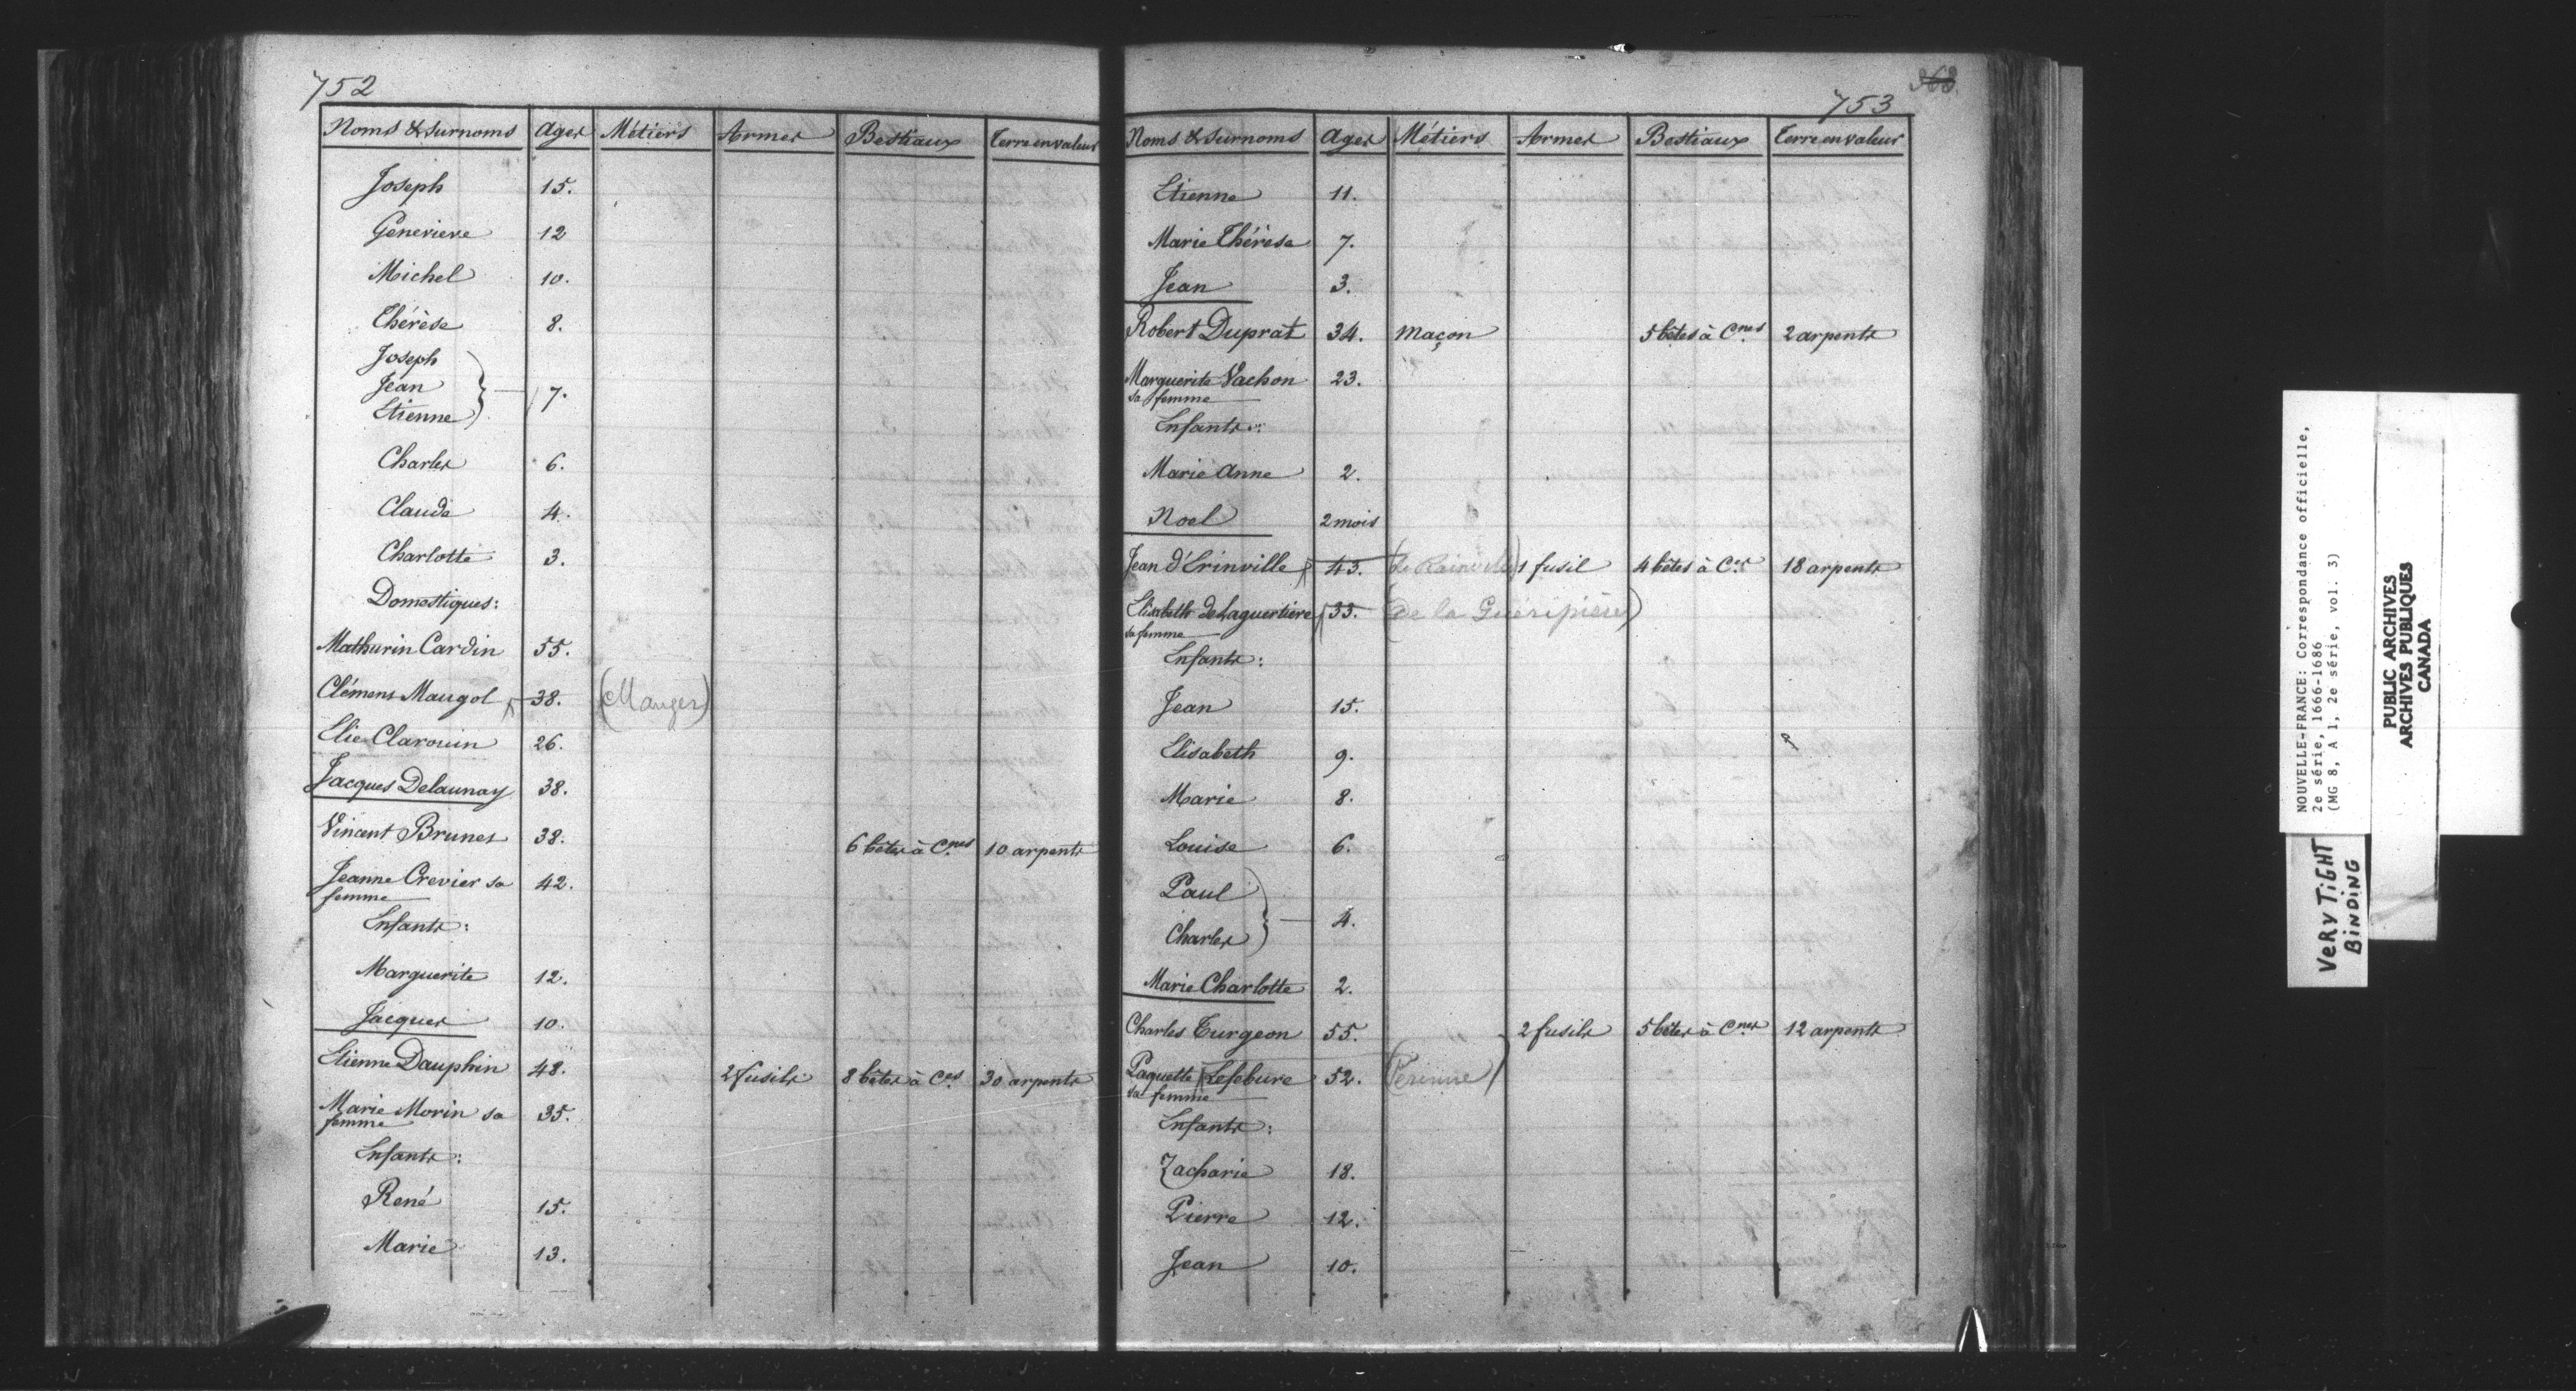 752
Noms & surnoms Ages Métiers Armes Bestiaux Terre en valeur
Joseph 15.
Genevieve 12
Michel 10.
Thérèse 8.
Joseph
Jean 7.
Etienne
Charles 6.
Claude 4.
Charlotte 3.
Domestiques:
Mathurin Cardin 55.
Clémens Maugol 38. (Mauger)
Elie Clarouin 26.
Jacques Delaunay 38.
Vincent Brunet 38. 6 bêtes à Cnes 10 arpents
Jeanne Crevier sa 42.
femme
Enfants:
Marguerite 12.
Jacques 10.
Etienne Dauphin 48. 2 fusils 8 bêtes à Ces 30 arpents
Marie Morin sa 35.
femme
Enfants:
René 15.
Marie 13.
368
753
Noms & surnoms Ages Métiers Armes Bestiaux Terre en valeur
Etienne 11.
Marie Thérèse 7.
Jean 3.
Robert Duprat 34. Maçon 5 bêtes à Cnes 2 arpents
Marguerite Vachon 23.
sa femme
Enfants:
Marie Anne 2.
Noel 2 mois
Jean d'Erinville 43. (de Rainville) 1 fusil 4 bêtes à Ces 18 arpents
Elisabeth de Laguertiere 33. (de la Guéripière)
sa femme
Enfants:
Jean 15.
Elisabeth 9.
Marie 8.
Louise 6.
Paul
4.
Charles
Marie Charlotte 2.
Charles Turgeon 55. 2 fusils 5 bêtes à Cnes 12 arpents
Paquette Lefebure 52. (Perinne)
sa femme
Enfants:
Zacharie 18.
Pierre 12.
Jean 10.
NOUVELLE-FRANCE: Correspondance officielle,
2e série, 1666-1686
(MG 8, A 1, 2e série, vol. 3)
PUBLIC ARCHIVES
ARCHIVES PUBLIQUES
CANADA
VERY TiGHT
BiNDiNG